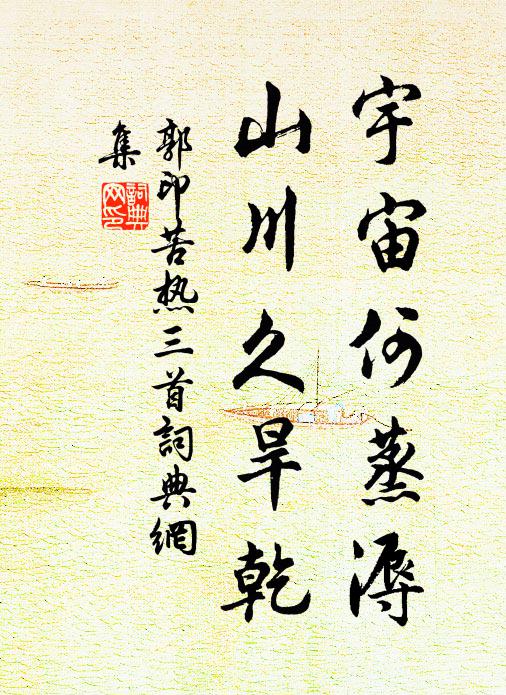 宇宙何蒸溽
山川久旱乾
郭印苦热三首詞典網
集
詞典网印